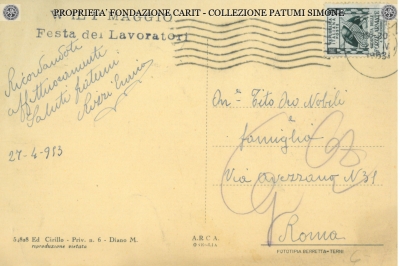 PROPRIETA' FONDAZIONE CARIT - COLLEZIONE PATUMI SIMONE
W IL 1° MAGGIO
Festa dei Lavoratori
Ricordandoti
affettuosamente
Saluti fraterni
27-4-953
On. Tito Oro Nobili
famiglia
Via Avezzano N 31
Roma
Ed Cirillo - Priv. n. 6 - Diano M.
riproduzione vietata
A.R.C.A.
FOTOTIPIA BERRETTA - TERNI